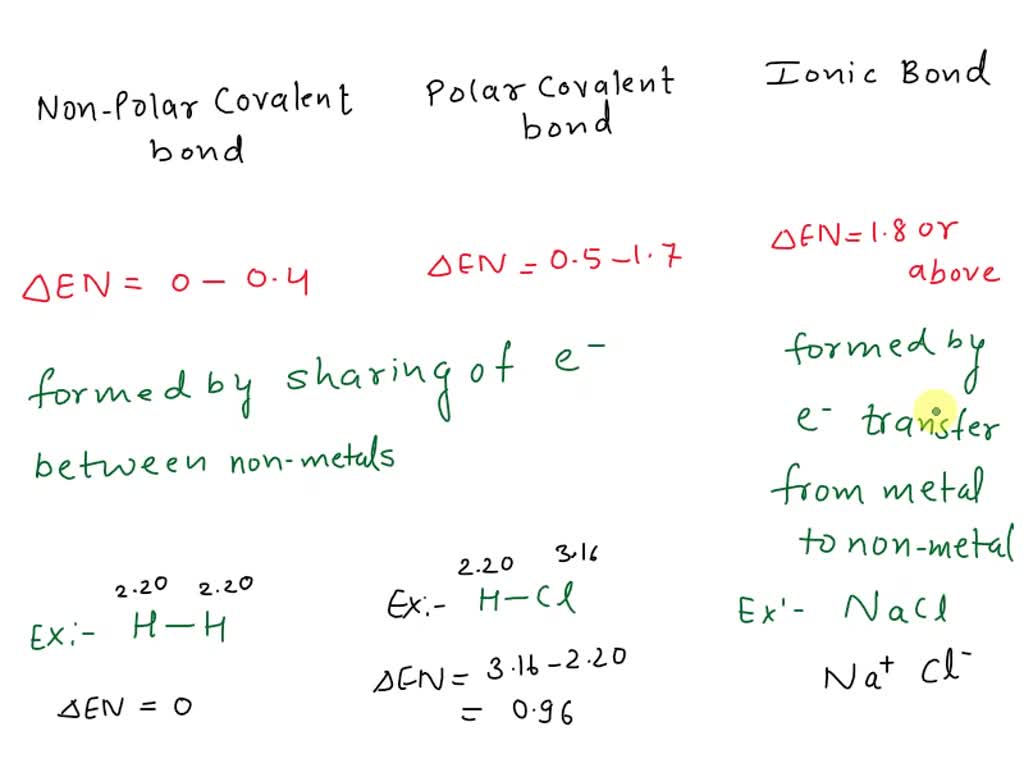 Non-Polar Covalent
bond
Polar Covalent
bond
Ionic Bond
ΔEN = 0 - 0.4
ΔEN = 0.5 - 1.7
ΔEN = 1.8 or
above
formed by sharing of e⁻
between non-metals
formed by
e⁻ transfer
from metal
to non-metal
2.20 2.20
Ex:- H-H
ΔEN = 0
2.20 3.16
Ex:- H-Cl
ΔEN = 3.16 - 2.20
= 0.96
Ex'- NaCl
Na⁺ Cl⁻